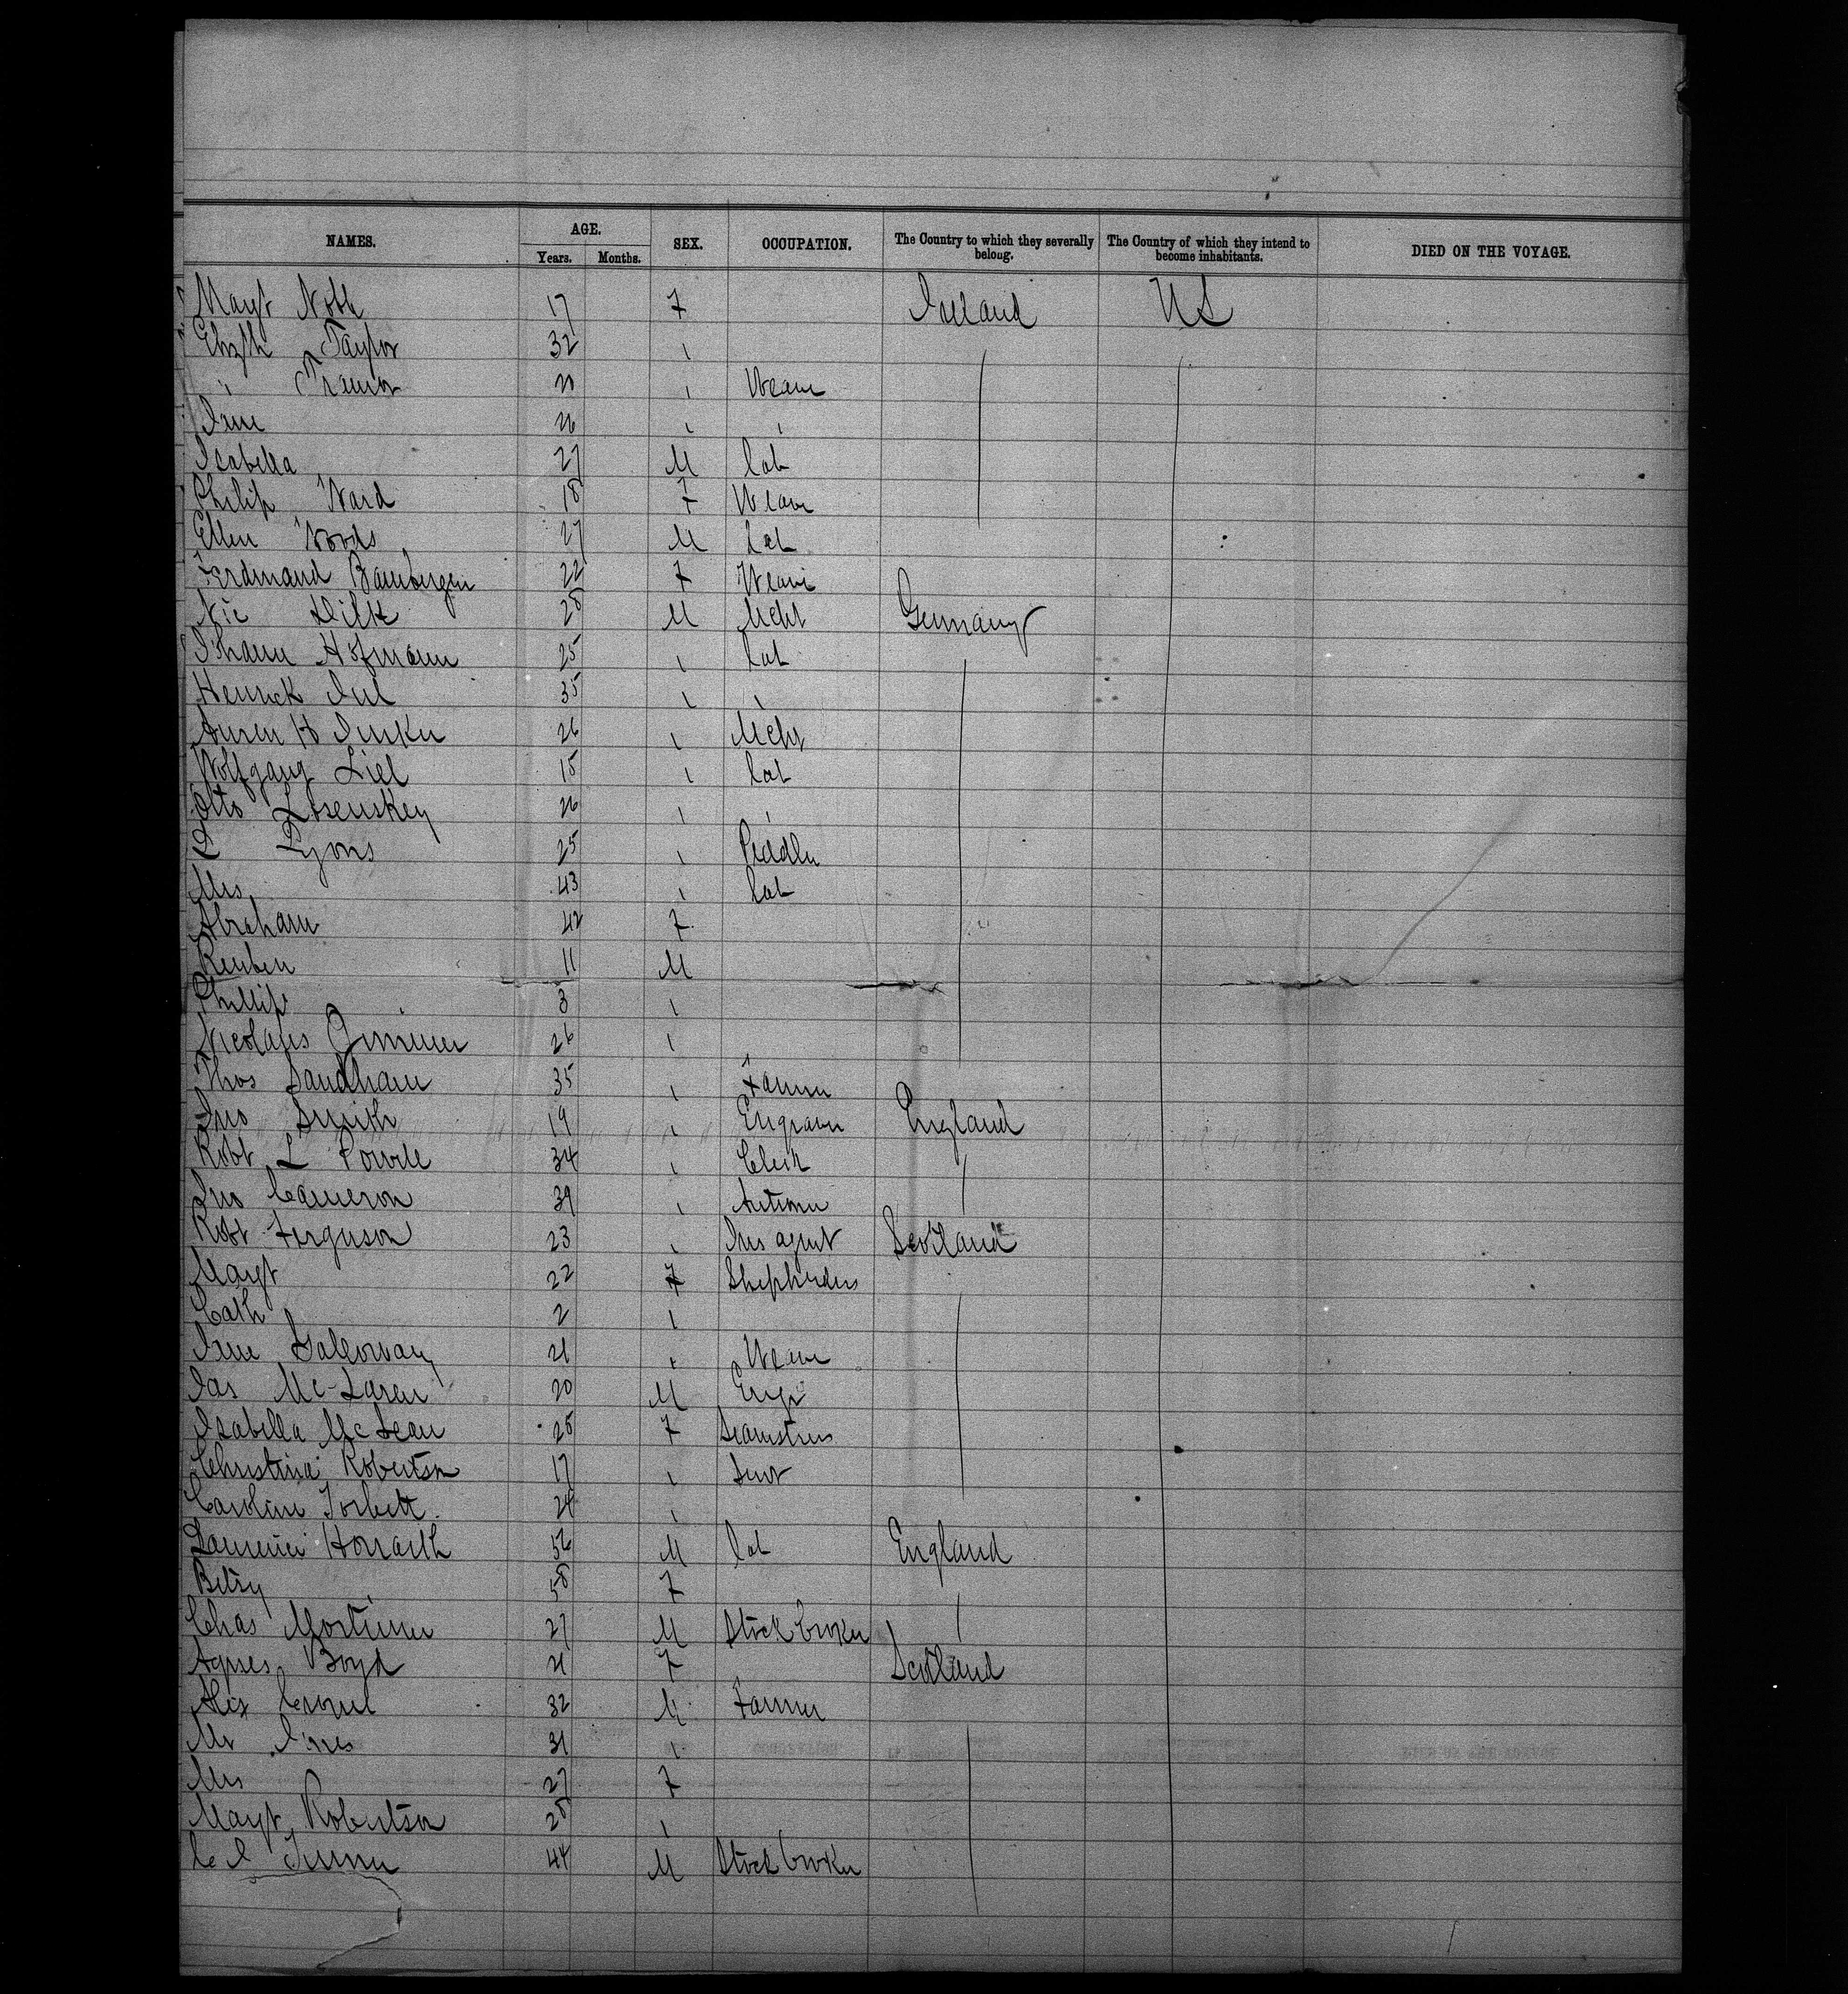 NAMES. AGE. SEX. OCCUPATION. The Country to which they severally belong. The Country of which they intend to become inhabitants. DIED ON THE VOYAGE.
Years. Months.
Margt Noble 17 F Ireland US
Elizth Taylor 32 "
" 21 " Weaver
Jane 26 " "
Isabella 27 M Lab
Philip Ward 18 F Weaver
Ellen Woods 27 M Lab
Ferdinand Bambergen 22 F Weaver
Nic Dilk 28 M Mcht Germany
Johann Hofmann 25 " Lab
Henrick 35 " "
H 26 " Mcht
Wolfgang Liel 18 " Lab
Otto Losenskey 26 " "
Lyons 25 " Peddler
Mrs 43 " Lab
Abraham 42 F
Reuben 11 M
Phillip 3 "
Nicolaus 26 "
Thos Sandham 35 " Farmer
Jno Smith 19 " Engraver England
Robt L Powell 34 " Clerk
Jno Cameron 39 "
Robt Ferguson 23 " Ins agent Scotland
Margt 22 F Shepherdess
Cath 2 "
Jane Galloway 21 " Weaver
Jas McLaren 20 M Engr
Isabella McLean 25 F Seamstress
Christina Robertson 17 " Servt
Caroline Torbett 24 "
Lawrence Horrath 56 M Lab England
Betsy 58 F
Chas Mortimer 27 M Stock broker
Agnes Boyd 21 F Scotland
Alex 32 M Farmer
Mr Innes 31 "
Mrs 27 F
Margt Robertson 25 "
C J Turner 44 M Stock broker